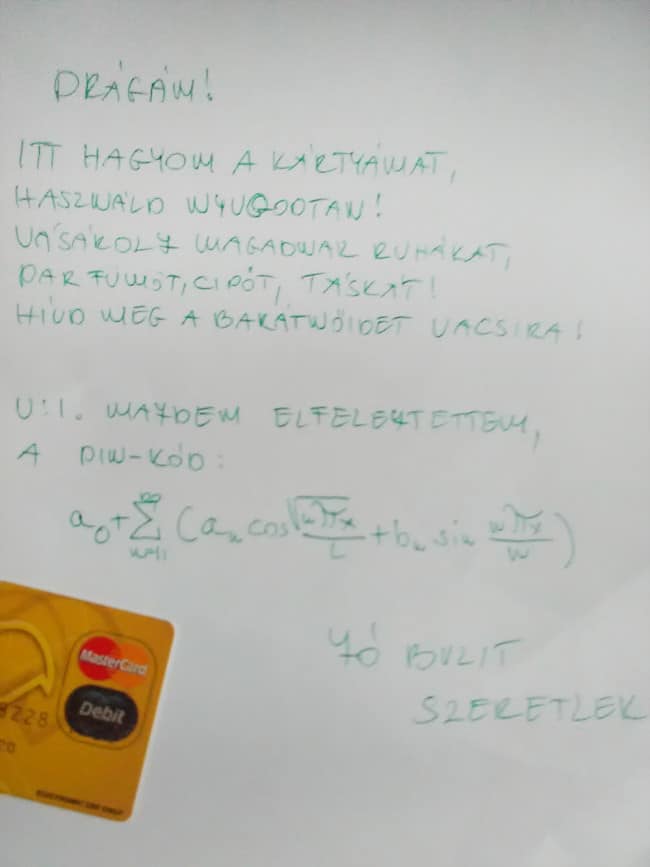 DRÁGÁM!
ITT HAGYOM A KÁRTYÁMAT,
HASZNÁLD NYUGODTAN!
VÁSÁROLJ MAGADNAK RUHÁKAT,
PARFÜMÖT, CIPŐT, TÁSKÁT!
HÍVD MEG A BARÁTNŐIDET VACSIRA!
U.I. MAJDEM ELFELEJTETTEM,
A PIN-KÓD:
a₀+∑(aₙ cos √nπx/L + bₙ sin nπx/w)
JÓ BULIT
SZERETLEK
MasterCard
Debit
8228
ELECTRONIC USE ONLY